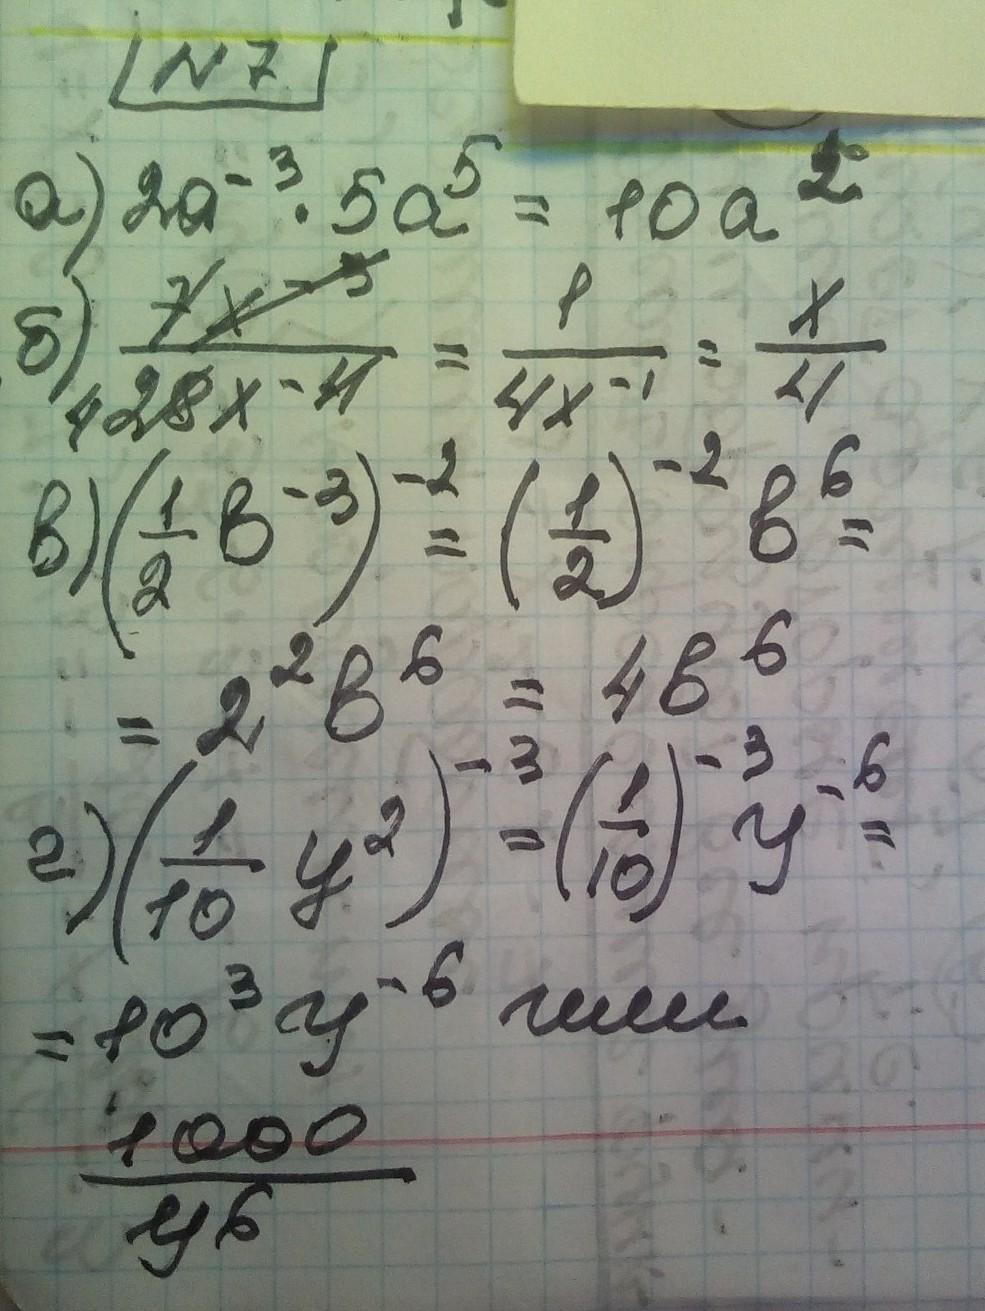 N7
а) 2a⁻³ · 5a⁵ = 10a²
б) 7x⁻³/28x⁻⁴ 4 = 1/4x⁻¹ = x/4
в) (1/2 в⁻³)⁻² = (1/2)⁻² в⁶ =
= 2² в⁶ = 4в⁶
г) (1/10 y²)⁻³ = (1/10)⁻³ y⁻⁶ =
= 10³ y⁻⁶ или
1000/y6